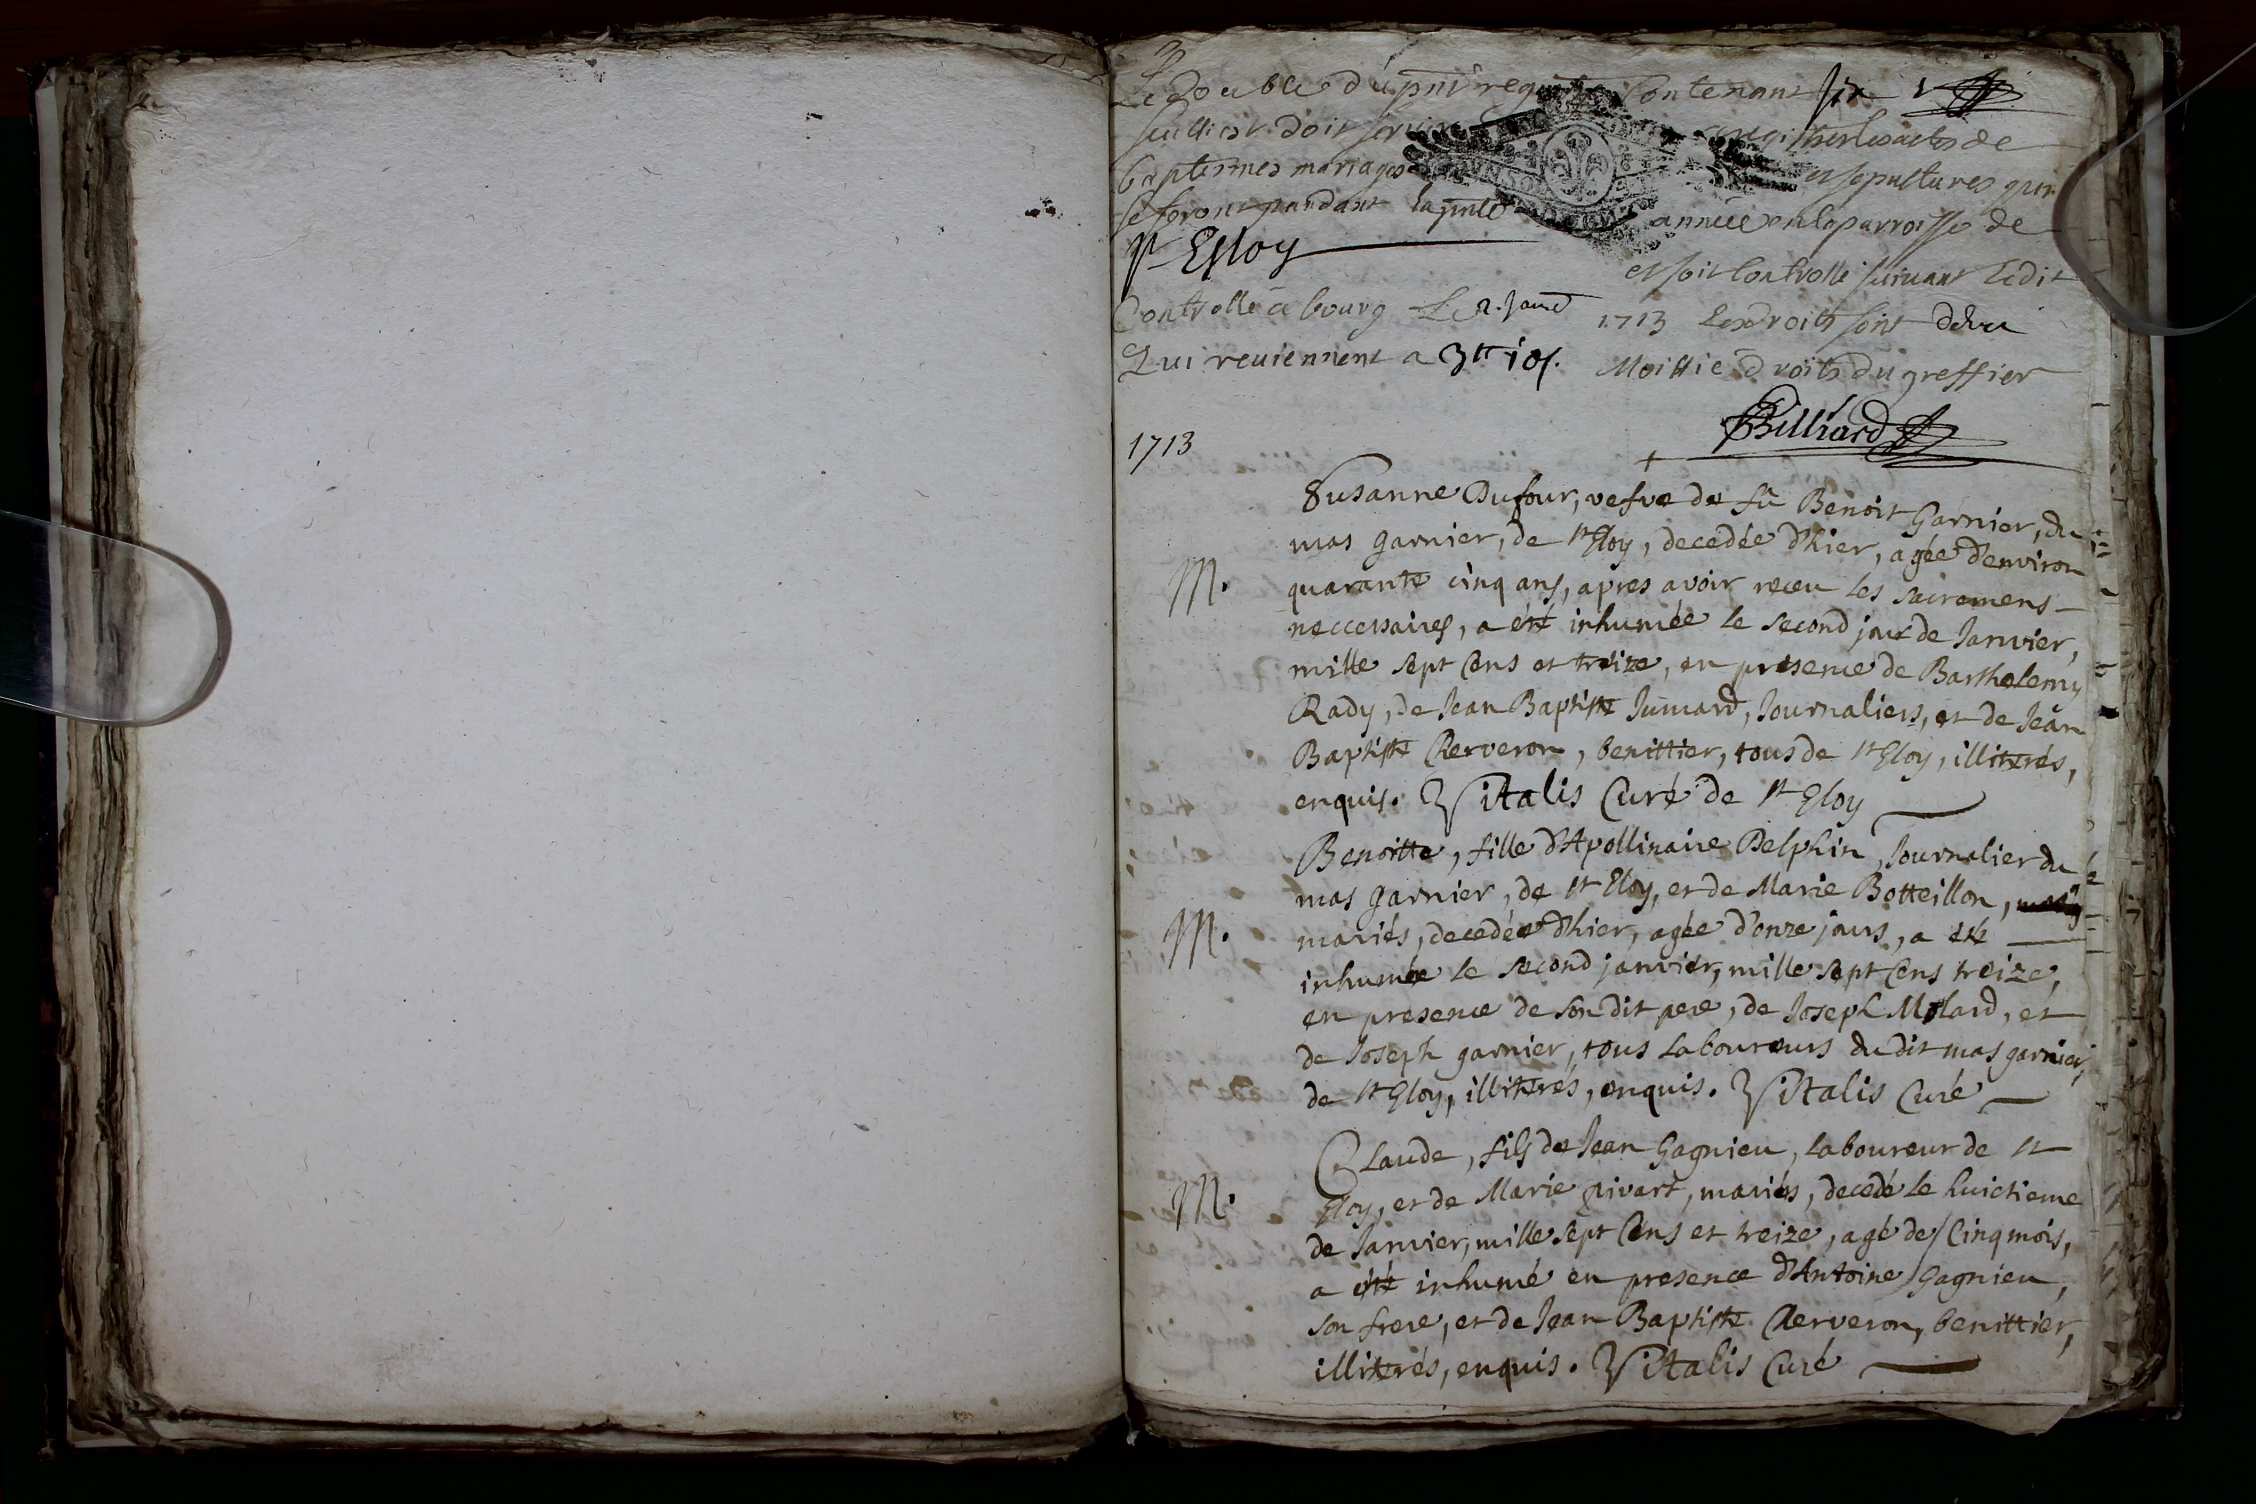 Le double du pnt regre Contenant six
feulliet doit servir enregistrer les actes de
baptesmes mariages et sepultures qui
se feront pandant la pnte année en la parroisse de
st Esloy
et soit Controllé suivant Ledit
Controllé a bourg Le 2. Janv 1713 Les droits sont de
Qui reviennent a 3tt 10s. Moittié droits du greffier
Billiard
1713
Susanne Dufour, vefve de fû Benoit Garnier, du
mas garnier, de st Eloy, decedée d'hier, agée d'environ
M. quarante cinq ans, apres avoir receu les sacremens
neccessaires, a été inhumée le second jour de Janvier,
mille sept Cens et treize, en presence de Barthelemy
Rady, de Jean Baptiste Jumard, Journaliers, et de Jean
Baptiste Cerveron, benittier, tous de st Eloy, illiterés,
enquis. Vitalis Curé de st Eloy
Benoitte, fille d'Apollinaire Delphin, Journalier du
mas garnier, de st Eloy, et de Marie Botteillon,
M. mariés, decedée d'hier, agée d'onze jours, a été
inhumée le second janvier, mille sept Cens treize,
en presence de son dit pere, de Joseph Molard, et
de Joseph garnier, tous Laboureurs du dit mas garnier,
de st Eloy, illiterés, enquis. Vitalis Curé
Claude, fils de Jean Gagnieu, Laboureur de st
M. Eloy, et de Marie pivart, mariés, decedé le huictieme
de Janvier, mille sept Cens et treize, agé de Cinq mois,
a été inhumé en presence d'Antoine Gagnieu,
son frere, et de Jean Baptiste Cerveron, benittier,
illiterés, enquis. Vitalis Curé